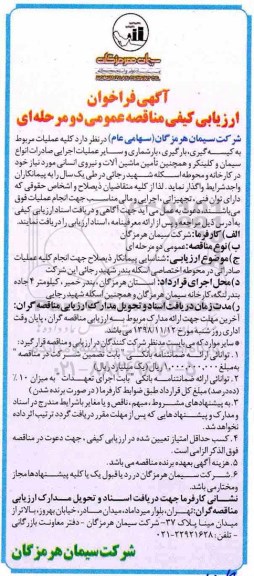 سیمان هرمزگان
آگهی فراخوان
ارزیابی کیفی مناقصه عمومی دو مرحله ای
شرکت سیمان هرمزگان (سهامی عام) در نظر دارد کلیه عملیات مربوط
به کیسه گیری، بارگیری، بارشماری و سایر عملیات اجرایی صادرات انواع
سیمان و کلینکر و همچنین تأمین ماشین آلات و نیروی انسانی مورد نیاز خود
در کارخانه و محوطه اسکله شهید رجائی در طی یک سال را به پیمانکاران
واجد شرایط واگذار نماید. لذا از کلیه متقاضیان ذیصلاح و اشخاص حقوقی که
دارای توان فنی، تجهیزاتی، اجرایی و مالی مناسب جهت انجام عملیات فوق
می باشند دعوت بعمل می آید جهت آگاهی و دریافت اسناد ارزیابی کیفی
به آدرس ذیل مراجعه و پس از ارائه معرفینامه، اسناد ارزیابی را دریافت نمایند.
الف) کارفرما: شرکت سیمان هرمزگان
ب) نوع مناقصه: عمومی دو مرحله ای
ج) موضوع ارزیابی: شناسایی پیمانکار ذیصلاح جهت انجام کلیه عملیات
صادراتی در محوطه اختصاصی اسکله بندر شهید رجائی این شرکت
د) محل اجرای قرارداد: استان هرمزگان، بندر خمیر، کیلومتر ۴ جاده
بندر لنگه، کارخانه سیمان هرمزگان و همچنین اسکله شهید رجایی
ه) مدت زمان دریافت اسناد و تحویل مدارک ارزیابی مناقصه گران:
آخرین مهلت جهت ارائه مدارک مربوط به ارزیابی مناقصه گران، پایان وقت
اداری روز شنبه مورخ ۱۳۹۸/۱۱/۱۲ می باشد.
* سایر موارد که می بایست مدنظر شرکت کنندگان در ارزیابی و مناقصه قرار گیرد:
۱. توانائی ارائه ضمانتنامه بانکی "بابت تضمین شرکت در مناقصه"
۲. توانائی ارائه ضمانتنامه بانکی "بابت اجرای تعهدات" به میزان ۱۰٪
(ده درصد) مبلغ کل قرارداد طبق ضوابط کارفرما (در صورت برنده شدن)
۳. به پیشنهادهای مشروط، مبهم، ناقص و یا مغایر با شرایط مندرج در اسناد
و مدارک و پیشنهاد هایی که پس از مهلت مقرر دریافت گردد ترتیب اثر داده
نخواهد شد.
۴. کسب حداقل امتیاز تعیین شده در ارزیابی کیفی، جهت دعوت در مناقصه
فوق الذکر الزامی است.
۵. هزینه آگهی بعهده برنده مناقصه می باشد.
۶. شرکت سیمان هرمزگان در رد یا قبول یک یا کلیه پیشنهادها مجاز
و مختار می باشد.
نشانی کارفرما جهت دریافت اسناد و تحویل مدارک ارزیابی
مناقصه گران: تهران، بلوار میرداماد، میدان مادر، خیابان بهروز، بالاتر از
میدان مینا پلاک ۳۷- شرکت سیمان هرمزگان - دفتر معاونت بازرگانی
- تلفن: ۲۲۹۲۱۶۲۸-۰۲۱
شرکت سیمان هرمزگان